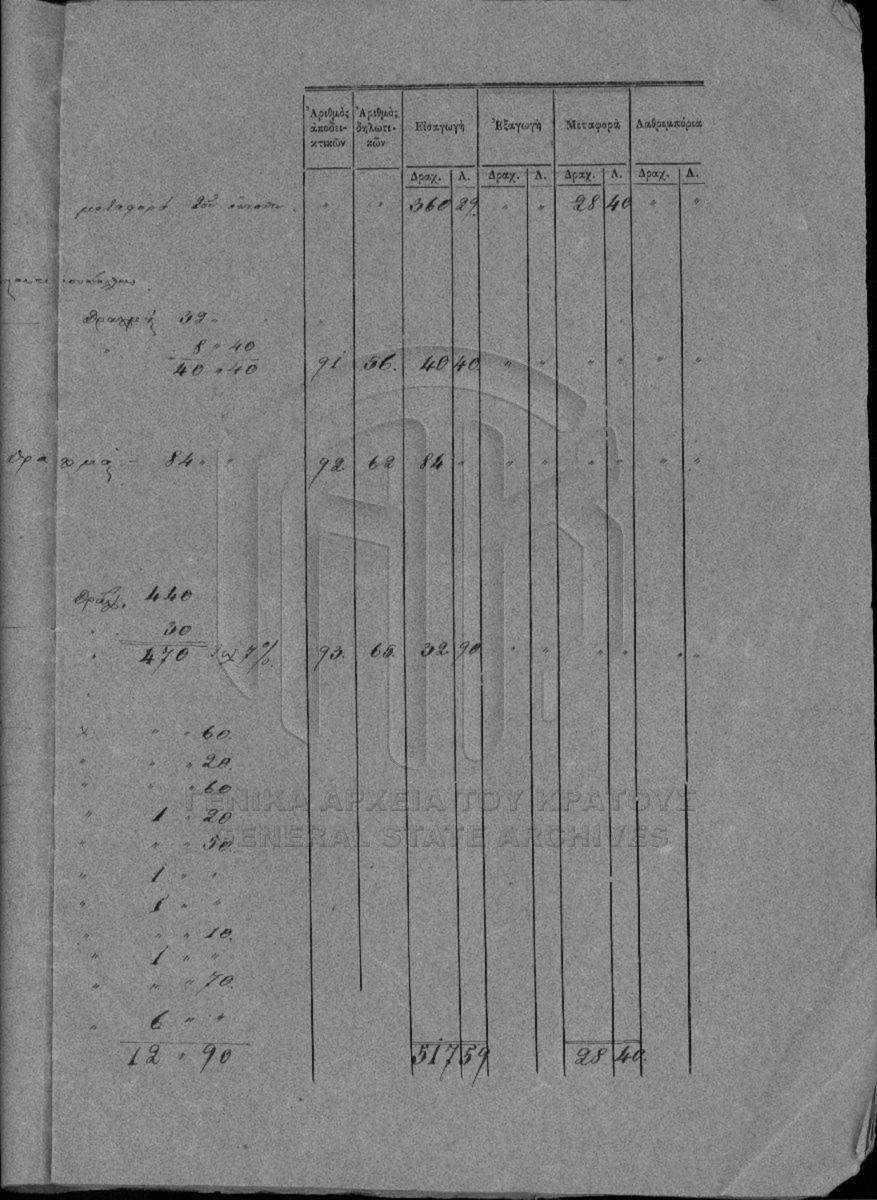 Ἀριθμὸς ἀποδει- κτικῶν Ἀριθμὸς δηλωτι- κῶν Εἰσαγωγὴ Ἐξαγωγὴ Μεταφορὰ Λαθρεμπόρια
Δραχ. Λ. Δραχ. Λ. Δραχ. Λ. Δραχ. Λ.
μεταφορὰ " " 360 29. " " 28 40 " "
Δραχμαὶ 32 "
" 8 " 40
40 " 40 91 56. 40 40. " " " " " "
Δραχμαὶ 84 " " 92. 62 84 " " " " " " "
Δραχ. 440
" 30
" 470 7% 93. 65. 32 90 " " " " " "
" " 60.
" " " 20.
" " " 60
" 1 " 20
" " " 50.
" 1 " "
" 1 " "
" " " 10.
" 1 " "
" " " 70.
" 6 " "
12 " 90 517 59 28 40.
ΓΕΝΙΚΑ ΑΡΧΕΙΑ ΤΟΥ ΚΡΑΤΟΥΣ
GENERAL STATE ARCHIVES